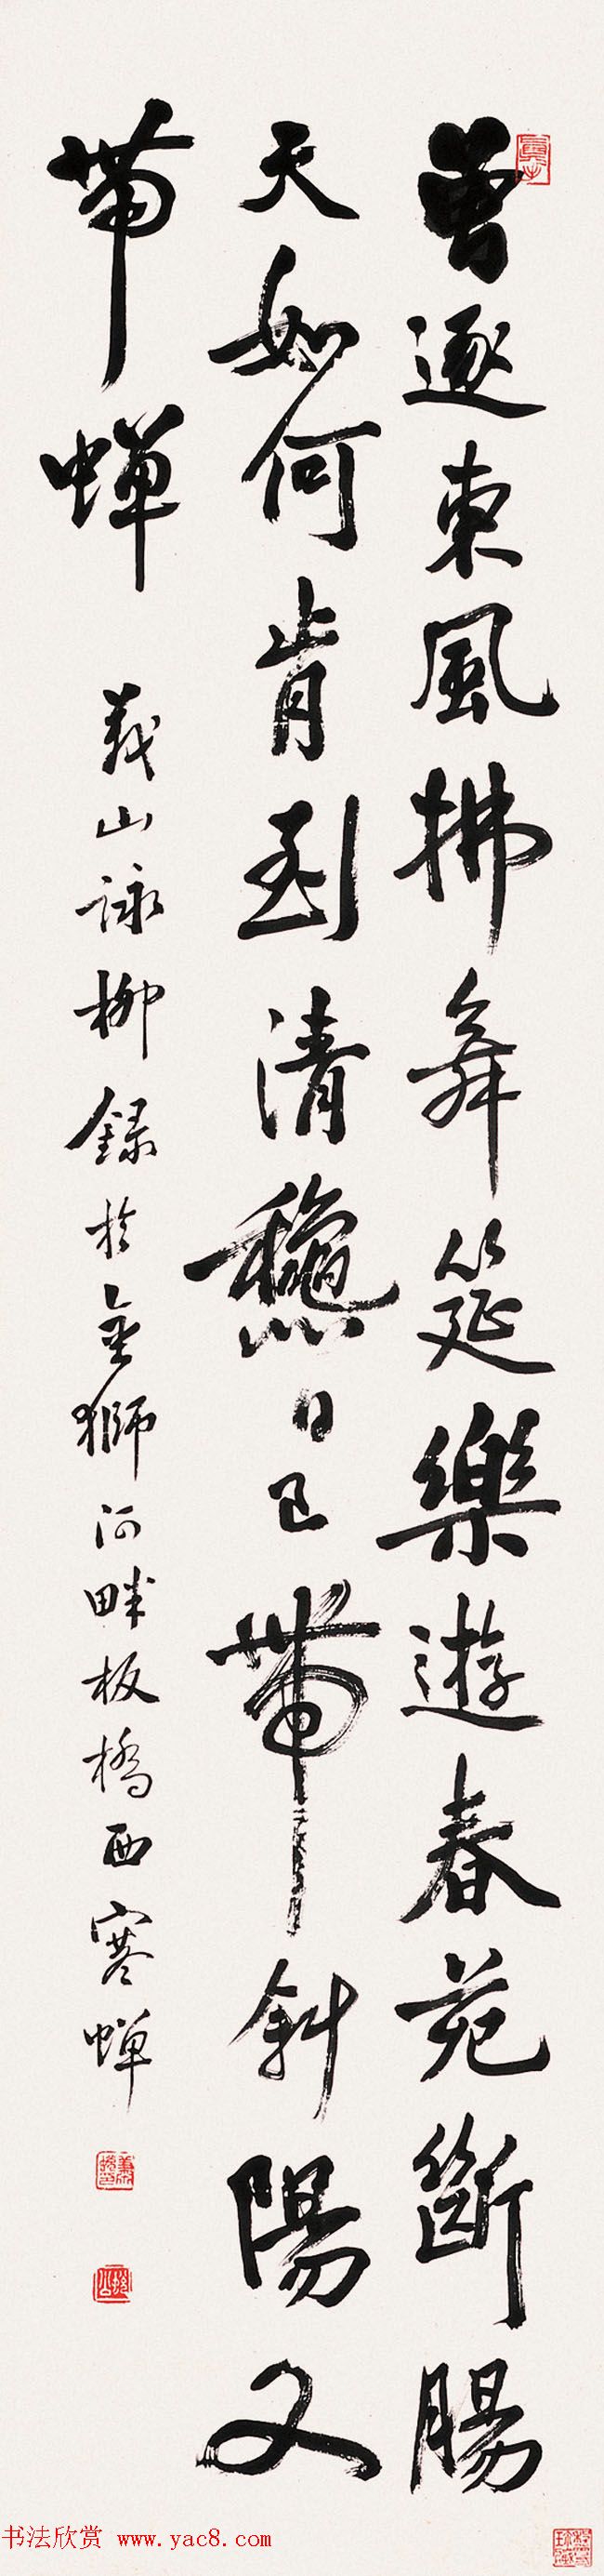 曾逐東風拂舞筵樂遊春苑斷腸
天如何肯到清穐日已带斜陽又
带蝉
義山詠柳録於金獅河畔板橋西寒蝉
书法欣赏 www.yac8.com